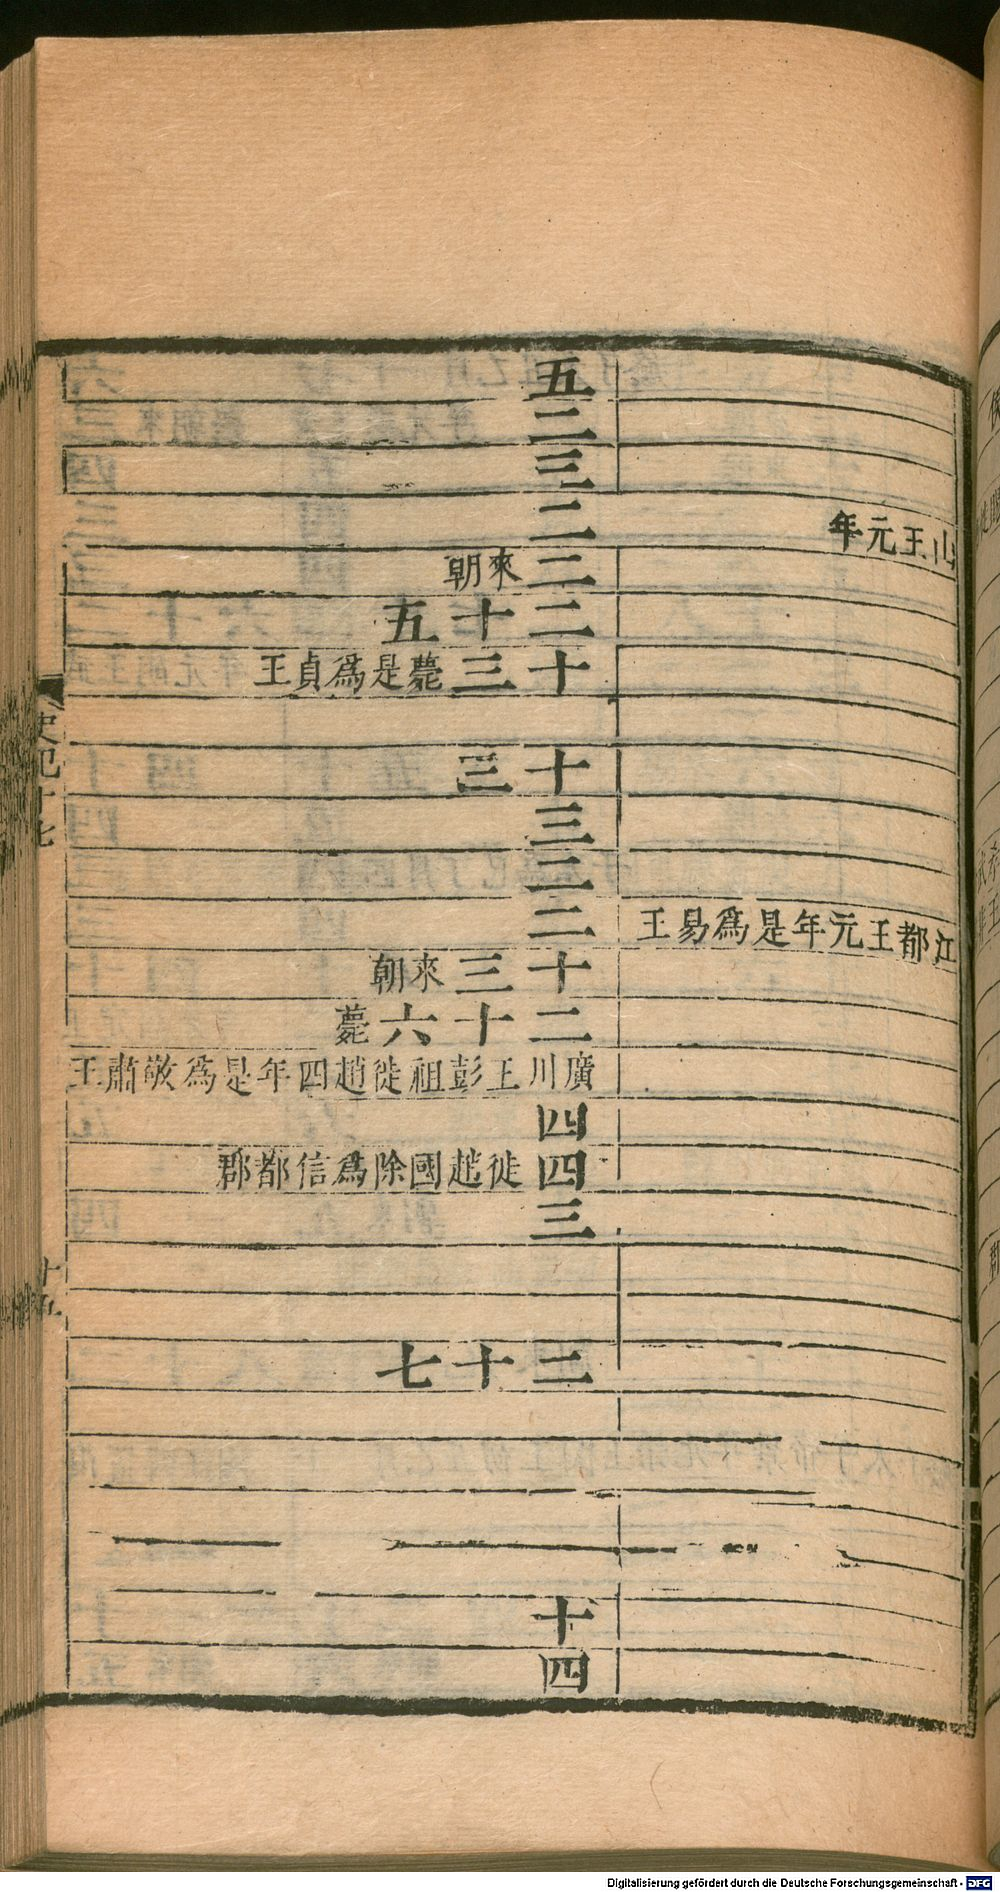 山王元年
江都王元年是為易王
五
二
三
二
二來朝
二十五
十三薨是爲貞王
十三
三
三
二
十三來朝
二十六薨
廣川王彭祖徙趙四年是爲敬肅王
四
四徙趙國除爲信都郡
三
三十七
十
四
Digitalisierung gefördert durch die Deutsche Forschungsgemeinschaft - DFG